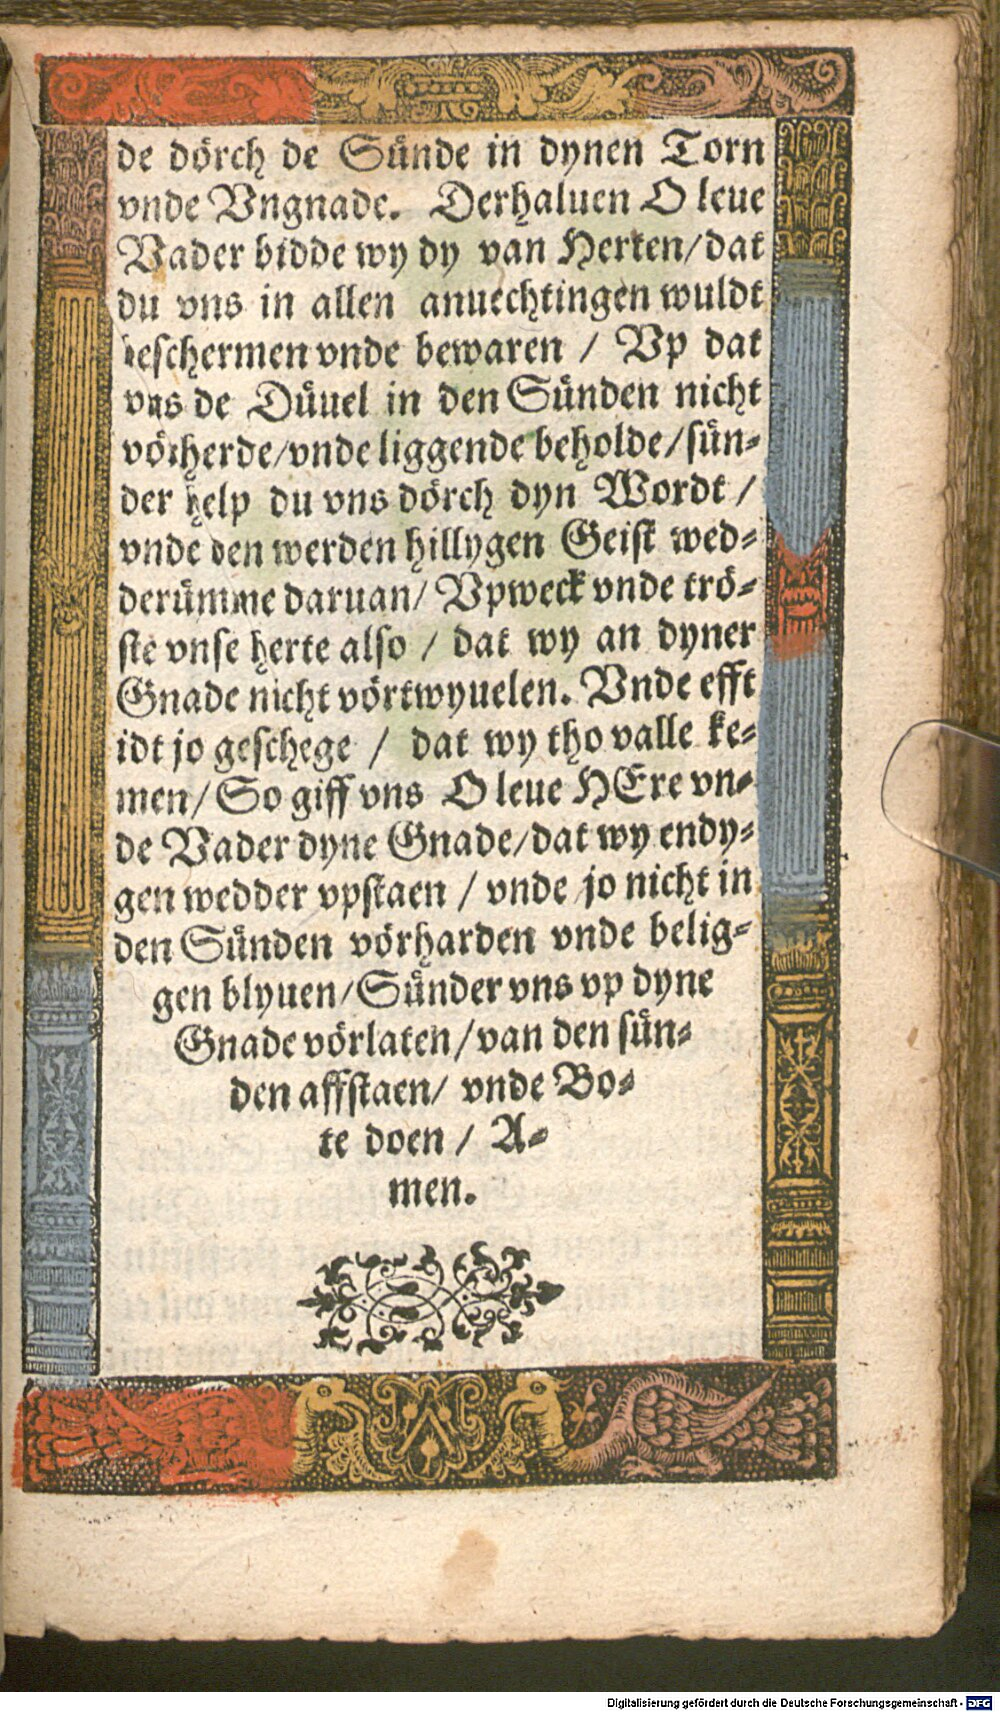 de dörch de Sünde in dynen Torn
vnde Vngnade. Derhaluen O leue
Vader bidde wy dy van Herten/dat
du vns in allen anuechtingen wuldt
beschermen vnde bewaren / Vp dat
vns de Düuel in den Sünden nicht
vörherde/vnde liggende beholde/sün-
der help du vns dörch dyn Wordt /
vnde den werden hillygen Geist wed-
derümme daruan/ Vpweck vnde trö-
ste vnse herte also / dat wy an dyner
Gnade nicht vörtwyuelen. Vnde efft
idt jo geschege / dat wy tho valle ke-
men/ So giff vns O leue HEre vn-
de Vader dyne Gnade/dat wy endy-
gen wedder vpstaen / vnde jo nicht in
den Sünden vörharden vnde belig-
gen blyuen/Sünder vns vp dyne
Gnade vörlaten/van den sün-
den affstaen/ vnde Bo-
te doen / A-
men.
Digitalisierung gefördert durch die Deutsche Forschungsgemeinschaft - DFG